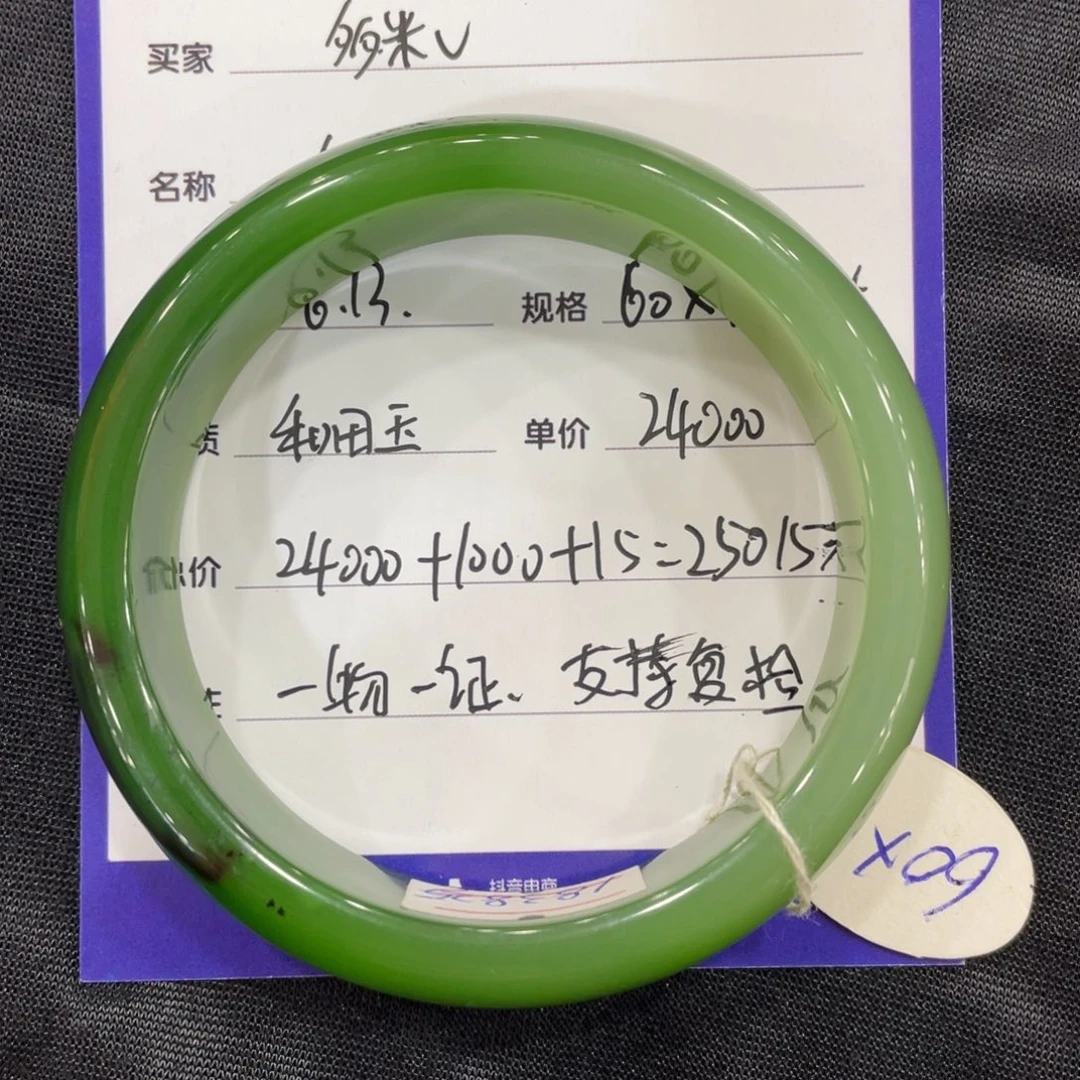 买家 多米V
名称
6.13. 规格 60X
质 和田玉 单价 24000
总价 24000+1000+15=25015元
一物一证、支持复检
抖音电商
60X